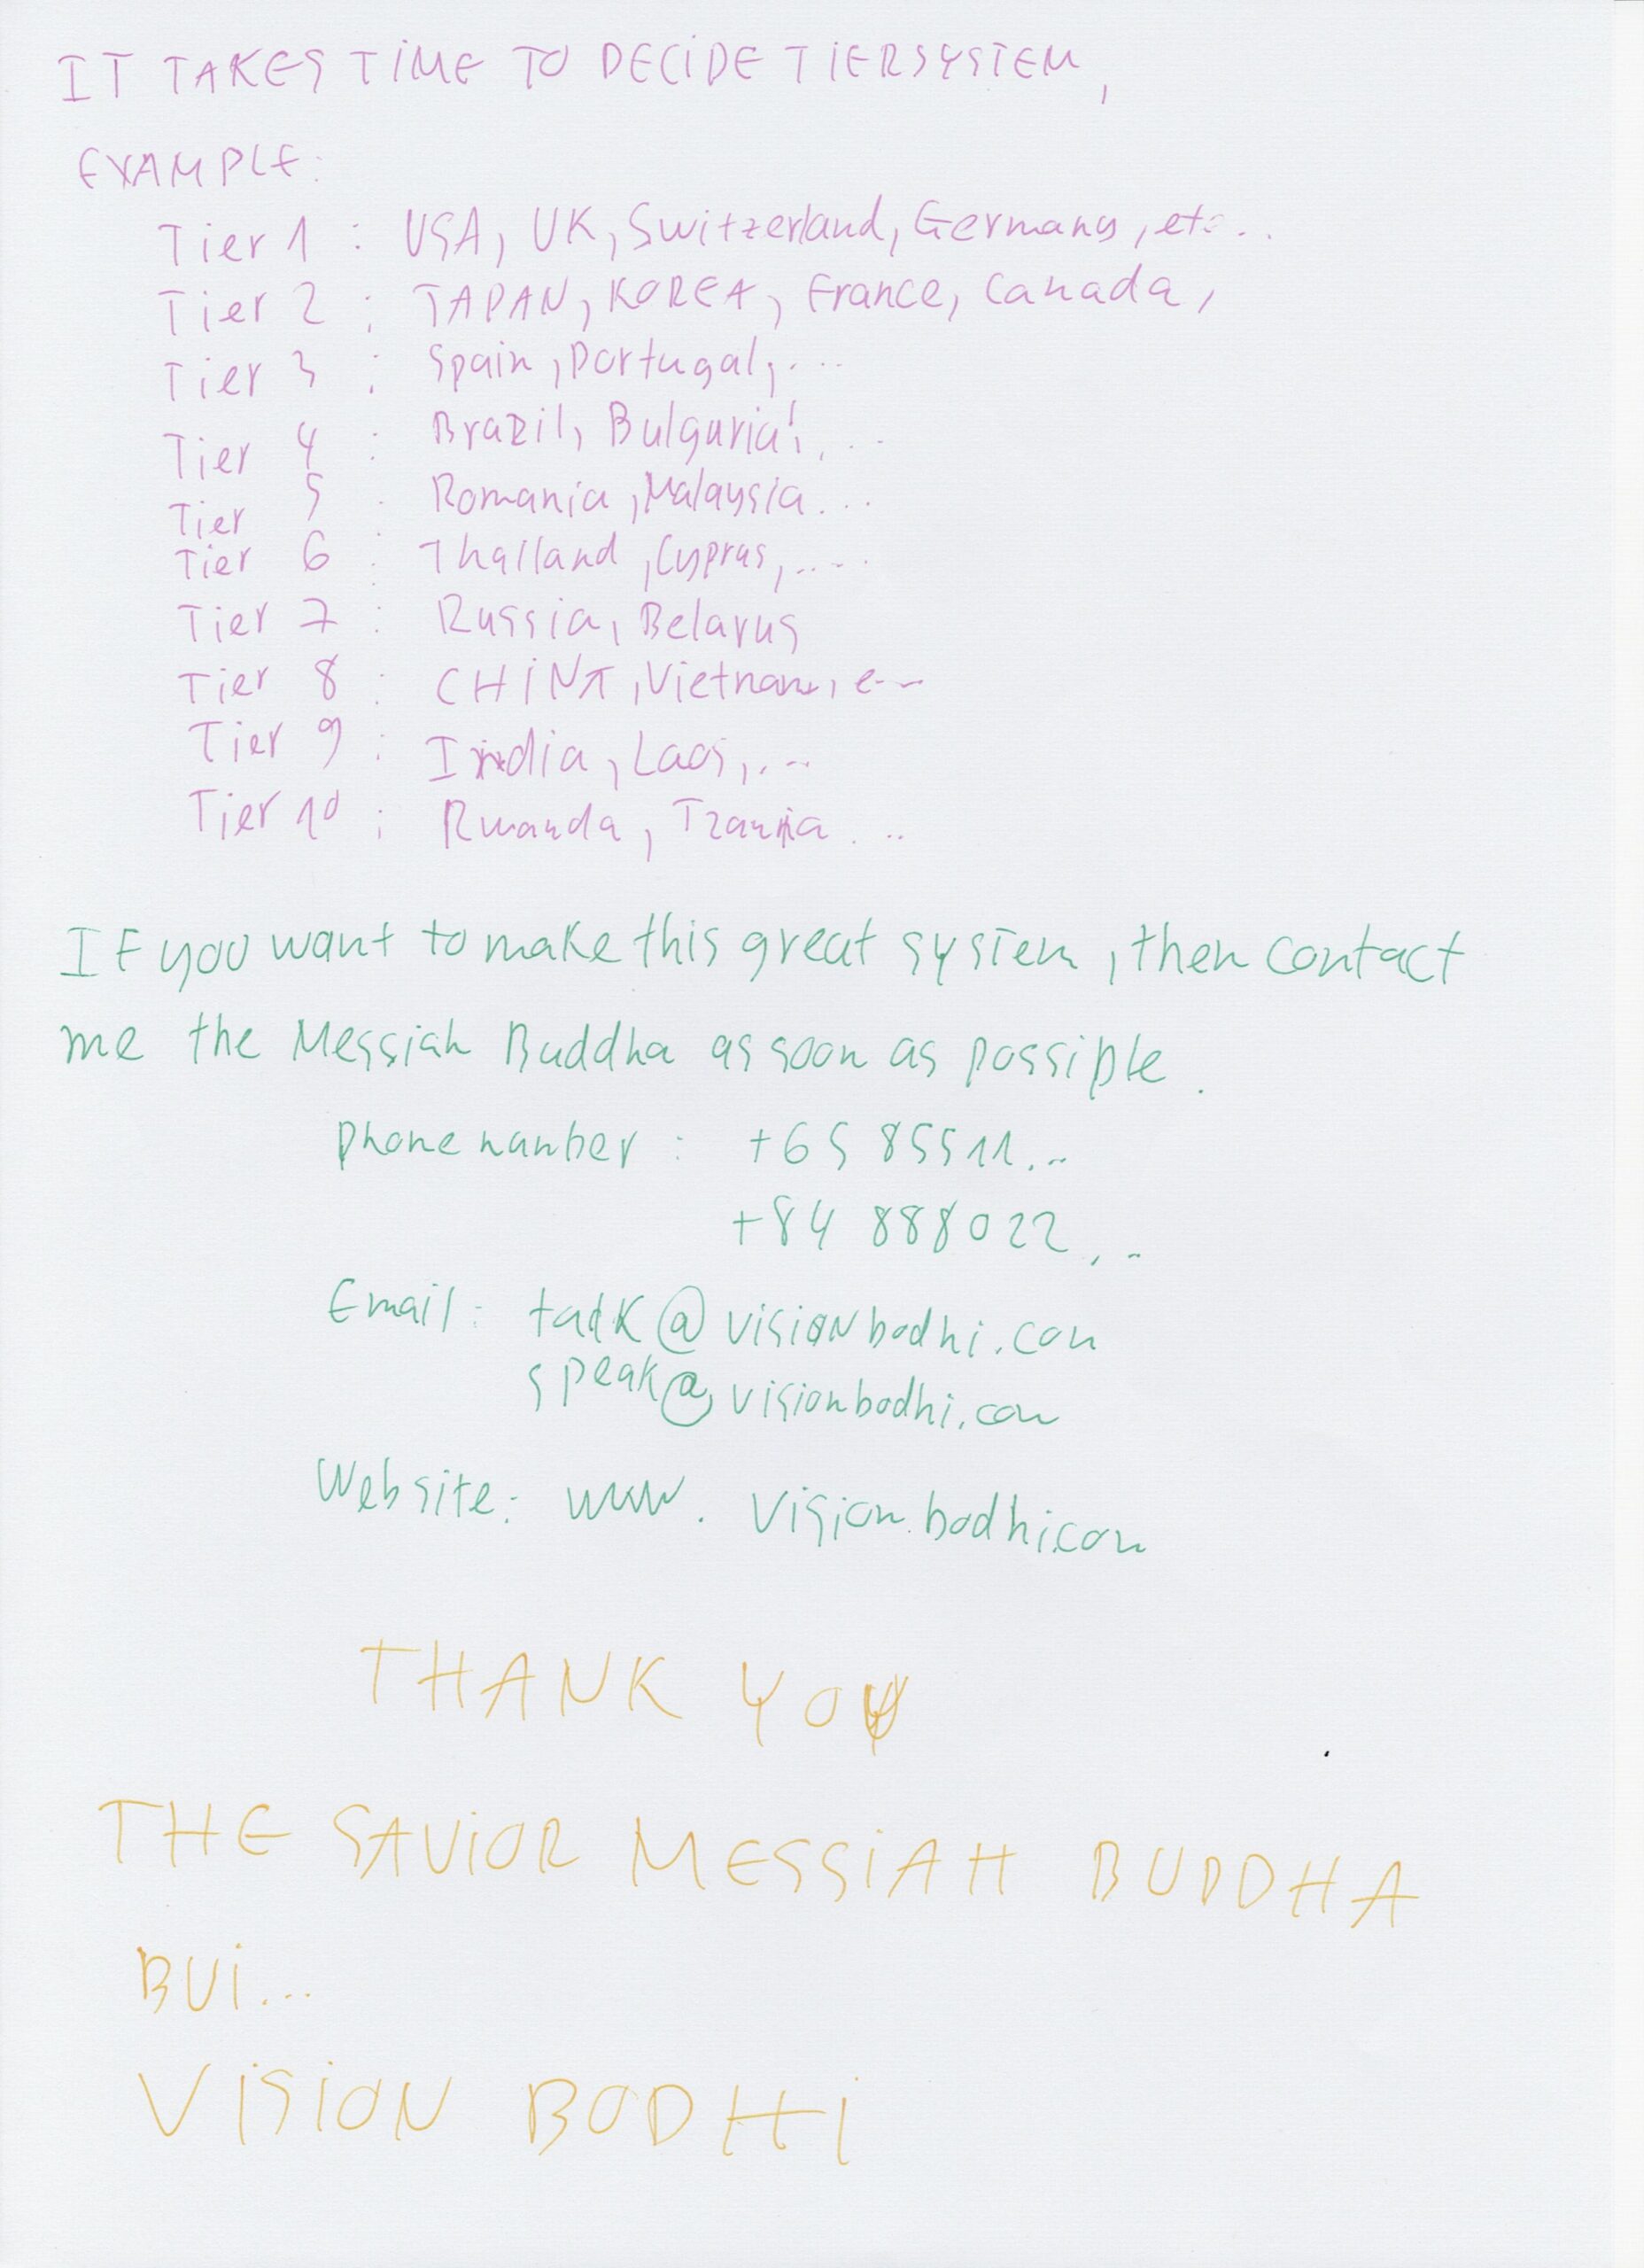 IT TAKES TIME TO DECIDE TIERSYSTEM,
EXAMPLE:
Tier 1 : USA, UK, Switzerland, Germany, etc...
Tier 2 : JAPAN, KOREA, France, Canada,
Tier 3 : Spain, Portugal, ...
Tier 4 : Brazil, Bulgaria, ...
Tier 5 : Romania, Malaysia...
Tier 6 : Thailand, Cyprus, ....
Tier 7 : Russia, Belarus
Tier 8 : CHINA, Vietnam,
Tier 9 : India, Laos, ...
Tier 10 : Rwanda, ...
If you want to make this great system, then contact
me the Messiah Buddha as soon as possible.
Phone number : +65 85511...
+84 888022...
Email: @visionbodhi.com
speak@visionbodhi.com
Website: www.visionbodhi.com
THANK YOU
THE SAVIOR MESSIAH BUDDHA
BUI...
VISION BODHI